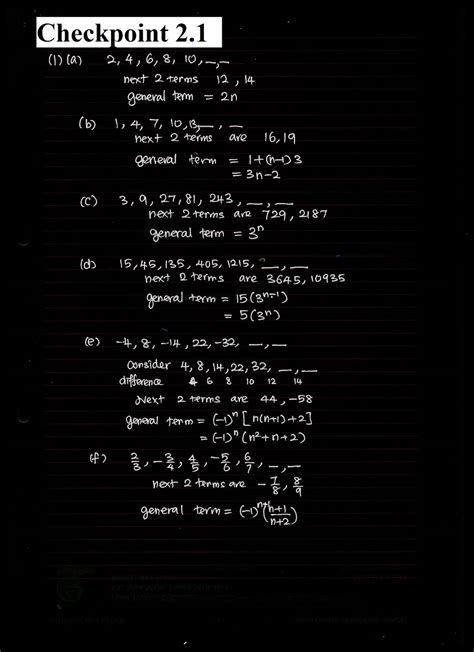 Checkpoint 2.1
(1) (a) 2, 4, 6, 8, 10, _, _
next 2 terms 12, 14
general term = 2n
(b) 1, 4, 7, 10, 13, _, _
next 2 terms are 16, 19
general term = 1+(n-1)3
= 3n-2
(c) 3, 9, 27, 81, 243, _, _
next 2 terms are 729, 2187
general term = 3ⁿ
(d) 15, 45, 135, 405, 1215, _, _
next 2 terms are 3645, 10935
general term = 15(3ⁿ⁻¹)
= 5(3ⁿ)
(e) -4, 8, -14, 22, -32, _, _
Consider 4, 8, 14, 22, 32, _, _
difference 4 6 8 10 12 14
Next 2 terms are 44, -58
general term = (-1)ⁿ [n(n+1)+2]
= (-1)ⁿ (n²+n+2)
(f) 2/3, -3/4, 4/5, -5/6, 6/7, _, _
next 2 terms are -7/8, 8/9
general term = (-1)ⁿ⁺¹ (n+1/n+2)